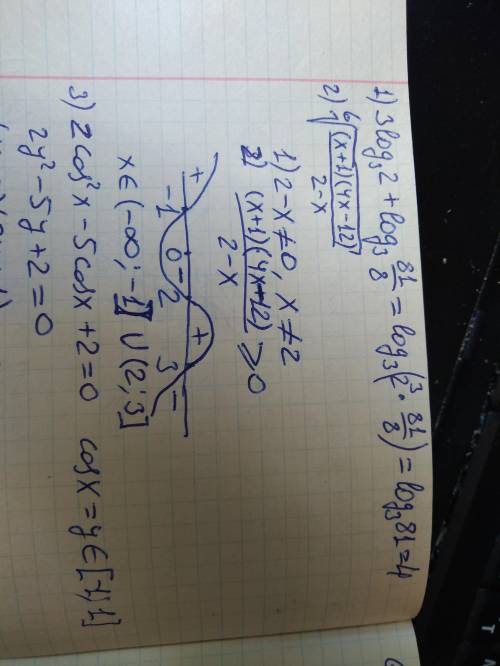 1) 3log₃2 + log₃ 81/8 = log₃(2³ · 81/8) = log₃81 = 4
2) ⁶√((x+1)(4x-12)/(2-x))
1) 2-x ≠ 0, x ≠ 2
2) (x+1)(4x+12)/(2-x) ≥ 0
+ -1 0 - 2 + 3 -
x ∈ (-∞; -1] ∪ (2; 3]
3) 2cos²x - 5cosx + 2 = 0 cosx = y ∈ [-1; 1]
2y² - 5y + 2 = 0